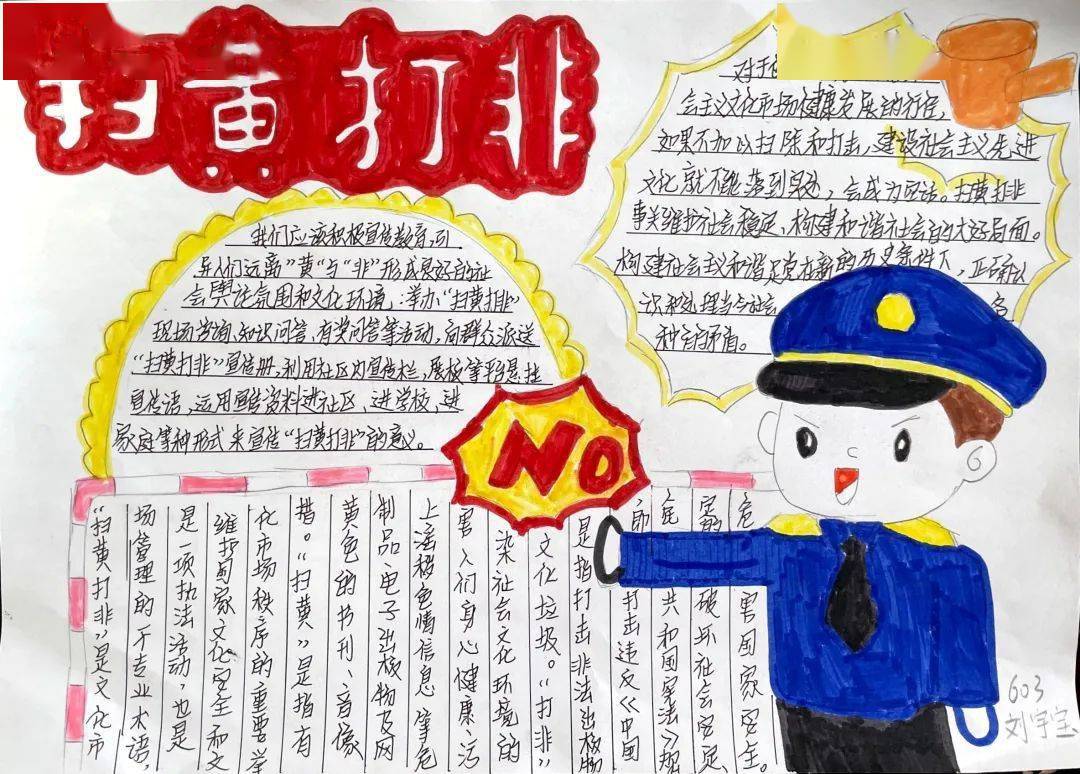 扫黄打非
我们应该积极宣传教育,引
导人们远离"黄"与"非"形成良好的社
会舆论氛围和文化环境,:举办"扫黄打非"
现场咨询、知识问答、有奖问答等活动,向群众派送
"扫黄打非"宣传册,利用社区内宣传栏,展板等形悬挂
宣传语,运用宣传资料进社区、进学校、进
家庭等种形式来宣传"扫黄打非"的意义。
对于
会主义文化市场健康发展的行径,
如果不加以扫除和打击,建设社会主义先进
文化就不能落到实处,会成为空话。扫黄打非
事关维护社会稳定、构建和谐社会的大好局面。
构建社会主义和谐是党在新的历史条件下,正确认
识和处理当今社会 各
种矛盾。
NO
"扫黄打非"是文化市
场管理的于专业术语,
是一项执法活动,也是
维护国家文化安全和文
化市场秩序的重要举
措。"扫黄"是指有
黄色的书刊、音像
制品、电子出版物及网
上淫秽色情信息等危
害人们身心健康、污
染社会文化环境的
文化垃圾。"打非"
是指打击非法出版物
即打击违反《中国
共和国宪法》规
定破坏社会安定
危害国家安全。
603
刘宇宝